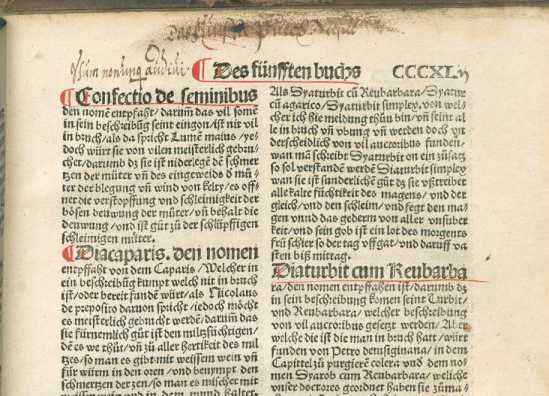 Des fünfften buchs CCCXL
Confectio de seminibus
den nomē entpfaht / darum̄ das vil some
in sein beschreibūg seint eingon / ist nit vil
in bruch / als da spricht Lumē maius / ye⸗
doch würt sie von vilen meisterlich gebru⸗
chet / darumb dz sie ist niderlegē dē schmer⸗
tzen der müter vn̄ des eingeweids d mü⸗
ter der blegung vn̄ wind von kelty / es off⸗
net die verstopffung vnd schleimigkeit der
bösen deuwung der müter / vn̄ behalt die
deuwung / vnd ist güt zu der schlüpffigen
schleimigen müter.
Diacaparis. den nomen
entpfaht von dem Caparis / Welcher in
ein beschreibūg kumpt welch nit in bruch
ist / oder bereit fundē würt / als Nicolaus
de preposito daruon spricht / iedoch möcht
es meisterlich gebrucht werdē / darum̄ das
sie fürnemlich güt ist den miltzsüchtigen /
dē es we thüt / vn̄ zu aller hertikeit des mil
tzes / so man es gibt mit weissem wein vn̄
für würm in den oren / vnd benympt den
schmertzen der zen / so man es mischet mit
Als Dyaturbit cū Reubarbara / Dyatur
cū agarico / Dyaturbit simplex / von wel⸗
cher ich hie meldung thün bin / vn̄ seint al
le in bruch vn̄ vbung vn̄ werden doch vn
derscheidlich von vil auctoribus funden /
wan mā schreibt Dyaturbit on ein züsatz
so sol verstanden werdē Diaturbit simplex
wan sie ist sunderlichē güt dz sie vßtribet
alle kalte füchtikeit des magens / vnd der
gleich / vnd den schleim / vnd fegt den ma⸗
gen vnnd das gederm von aller vnsuber
keit / vnd sein gob ist ein lot des morgents
frü schier so der tag vffgat / vnd daruff va
sten biß mittag.
Diaturbit cum Reubarba
ra / den nomen entpfahen ist / darumb dz
in sein beschreibūg komen seint Turbit /
vnd Reubarbara / welcher beschreibung
von vil auctoribus gesetzt werden / Aber
welche die ist die man in bruch hatt / würt
funden von Petro detusignana / in dem
Capittel zü purgierē colera vnd dem no⸗
men Syarob cum Reubarbara / weliche
vnser doctores geordnet haben sie züma⸗